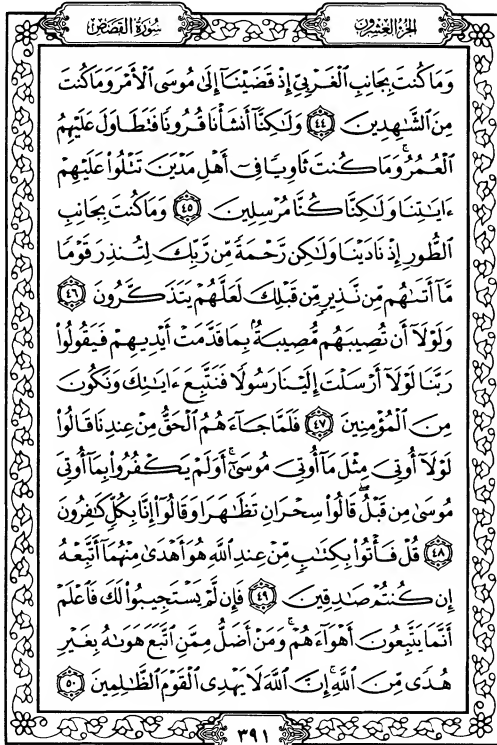 سُورَةُ القَصَصِ
الجُزءُ العِشرُونَ
وَمَا كُنتَ بِجَانِبِ ٱلْغَرْبِيِّ إِذْ قَضَيْنَآ إِلَىٰ مُوسَى ٱلْأَمْرَ وَمَا كُنتَ
مِنَ ٱلشَّٰهِدِينَ ٤٤ وَلَٰكِنَّآ أَنشَأْنَا قُرُونًا فَتَطَاوَلَ عَلَيْهِمُ
ٱلْعُمُرُ ۚ وَمَا كُنتَ ثَاوِيًا فِىٓ أَهْلِ مَدْيَنَ تَتْلُوا۟ عَلَيْهِمْ
ءَايَٰتِنَا وَلَٰكِنَّا كُنَّا مُرْسِلِينَ ٤٥ وَمَا كُنتَ بِجَانِبِ
ٱلطُّورِ إِذْ نَادَيْنَا وَلَٰكِن رَّحْمَةً مِّن رَّبِّكَ لِتُنذِرَ قَوْمًا
مَّآ أَتَىٰهُم مِّن نَّذِيرٍ مِّن قَبْلِكَ لَعَلَّهُمْ يَتَذَكَّرُونَ ٤٦
وَلَوْلَآ أَن تُصِيبَهُم مُّصِيبَةٌۢ بِمَا قَدَّمَتْ أَيْدِيهِمْ فَيَقُولُوا۟
رَبَّنَا لَوْلَآ أَرْسَلْتَ إِلَيْنَا رَسُولًا فَنَتَّبِعَ ءَايَٰتِكَ وَنَكُونَ
مِنَ ٱلْمُؤْمِنِينَ ٤٧ فَلَمَّا جَآءَهُمُ ٱلْحَقُّ مِنْ عِندِنَا قَالُوا۟
لَوْلَآ أُوتِىَ مِثْلَ مَآ أُوتِىَ مُوسَىٰٓ ۚ أَوَلَمْ يَكْفُرُوا۟ بِمَآ أُوتِىَ
مُوسَىٰ مِن قَبْلُ ۖ قَالُوا۟ سِحْرَانِ تَظَٰهَرَا وَقَالُوٓا۟ إِنَّا بِكُلٍّ كَٰفِرُونَ
٤٨ قُلْ فَأْتُوا۟ بِكِتَٰبٍ مِّنْ عِندِ ٱللَّهِ هُوَ أَهْدَىٰ مِنْهُمَآ أَتَّبِعْهُ
إِن كُنتُمْ صَٰدِقِينَ ٤٩ فَإِن لَّمْ يَسْتَجِيبُوا۟ لَكَ فَٱعْلَمْ
أَنَّمَا يَتَّبِعُونَ أَهْوَآءَهُمْ ۚ وَمَنْ أَضَلُّ مِمَّنِ ٱتَّبَعَ هَوَىٰهُ بِغَيْرِ
هُدًى مِّنَ ٱللَّهِ ۚ إِنَّ ٱللَّهَ لَا يَهْدِى ٱلْقَوْمَ ٱلظَّٰلِمِينَ ٥٠
٣٩١